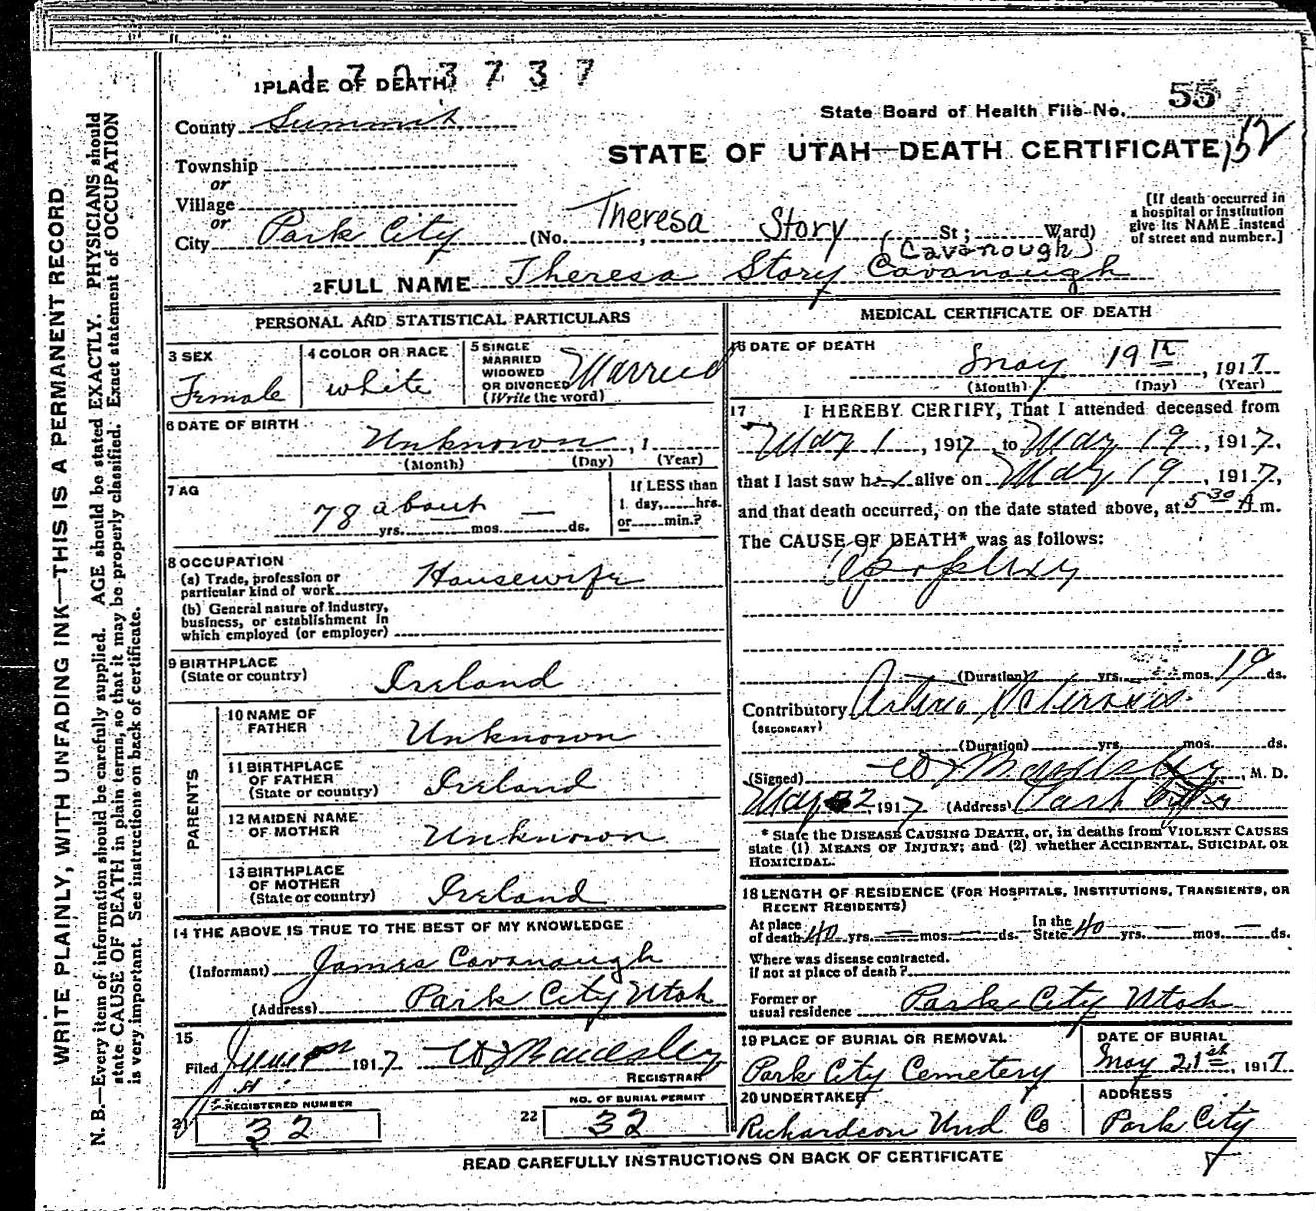 1 PLACE OF DEATH
1703737
State Board of Health File No. 55
County Summit
152
STATE OF UTAH—DEATH CERTIFICATE
Township
or
Village
or
City Park City (No. Theresa Story St; Ward)
(Cavanough)
[If death occurred in
a hospital or institution
give its NAME instead
of street and number.]
2 FULL NAME Theresa Story Cavanaugh
PERSONAL AND STATISTICAL PARTICULARS
3 SEX
Female
4 COLOR OR RACE
White
5 SINGLE
MARRIED
WIDOWED
OR DIVORCED
(Write the word)
Married
6 DATE OF BIRTH
Unknown , 1
(Month) (Day) (Year)
7 AG
78 about —
yrs. mos. ds.
If LESS than
1 day, hrs.
or min.?
8 OCCUPATION
(a) Trade, profession or
particular kind of work Housewife
(b) General nature of industry,
business, or establishment in
which employed (or employer)
9 BIRTHPLACE
(State or country) Ireland
PARENTS
10 NAME OF
FATHER Unknown
11 BIRTHPLACE
OF FATHER
(State or country) Ireland
12 MAIDEN NAME
OF MOTHER Unknown
13 BIRTHPLACE
OF MOTHER
(State or country) Ireland
14 THE ABOVE IS TRUE TO THE BEST OF MY KNOWLEDGE
(Informant) James Cavanaugh
(Address) Park City Utah
15
Filed June 1917
REGISTRAR
21 REGISTERED NUMBER
32
22 NO. OF BURIAL PERMIT
32
MEDICAL CERTIFICATE OF DEATH
16 DATE OF DEATH
May 19th, 1917
(Month) (Day) (Year)
17 I HEREBY CERTIFY, That I attended deceased from
May 1, 1917, to May 19, 1917,
that I last saw her alive on May 19, 1917,
and that death occurred, on the date stated above, at 5 30 A m.
The CAUSE OF DEATH* was as follows:
Apoplexy
(Duration) yrs. mos. 19 ds.
Contributory Arterio Sclerosis
(SECONDARY)
(Duration) yrs. mos. ds.
(Signed) , M. D.
May 22 1917 (Address) Park City
* State the DISEASE CAUSING DEATH, or, in deaths from VIOLENT CAUSES
state (1) MEANS OF INJURY; and (2) whether ACCIDENTAL, SUICIDAL OR
HOMICIDAL.
18 LENGTH OF RESIDENCE (FOR HOSPITALS, INSTITUTIONS, TRANSIENTS, OR
RECENT RESIDENTS)
At place
of death 40 yrs. — mos. — ds. In the State 40 yrs. — mos. — ds.
Where was disease contracted.
if not at place of death?
Former or
usual residence Park City Utah
19 PLACE OF BURIAL OR REMOVAL
Park City Cemetery
DATE OF BURIAL
May 21st, 1917
20 UNDERTAKER
Richardson Und Co
ADDRESS
Park City
READ CAREFULLY INSTRUCTIONS ON BACK OF CERTIFICATE
WRITE PLAINLY, WITH UNFADING INK—THIS IS A PERMANENT RECORD
N. B.—Every item of information should be carefully supplied. AGE should be stated EXACTLY. PHYSICIANS should
state CAUSE OF DEATH in plain terms, so that it may be properly classified. Exact statement of OCCUPATION
is very important. See instructions on back of certificate.